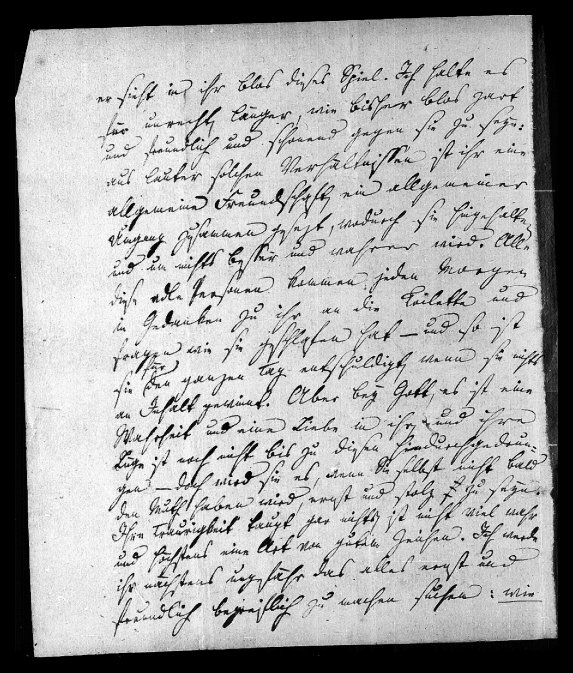 er sieht in ihr blos dieses Spiel. Ich halte es
für unrecht, länger, wie bisher blos zart
und freundlich und schonend gegen sie zu seyn:
aus lauter solchen Verhältnissen ist ihr eine
allgemeine Freundschaft, ein allgemeiner
Umgang zusammen gesezt, wodurch sie hingehalten
und um nichts besser und wahrer wird. Alle
diese edle Personen kommen jeden Morgen
in Gedanken zu ihr an die Toilette und
fragen wie sie geschlafen hat — und so ist
sie für den ganzen Tag entschuldigt, wenn sie nichts
an Inhalt gewinnt. Aber bey Gott, es ist eine
Wahrheit und eine Liebe in ihr, und ihre
Lüge ist noch nicht bis zu diesen hindurchgedrun-
gen — doch wird sie es, wenn Sie selbst nicht bald
den Muth haben wird, ernst und stolz zu seyn.
Ihre Traurigkeit taugt gar nichts, ist nicht viel wahr
und höchstens eine Art von gutem Zeichen. Ich werde
ihr nächstens ungefähr das alles ernst und
freundlich begreiflich zu machen suchen: wie